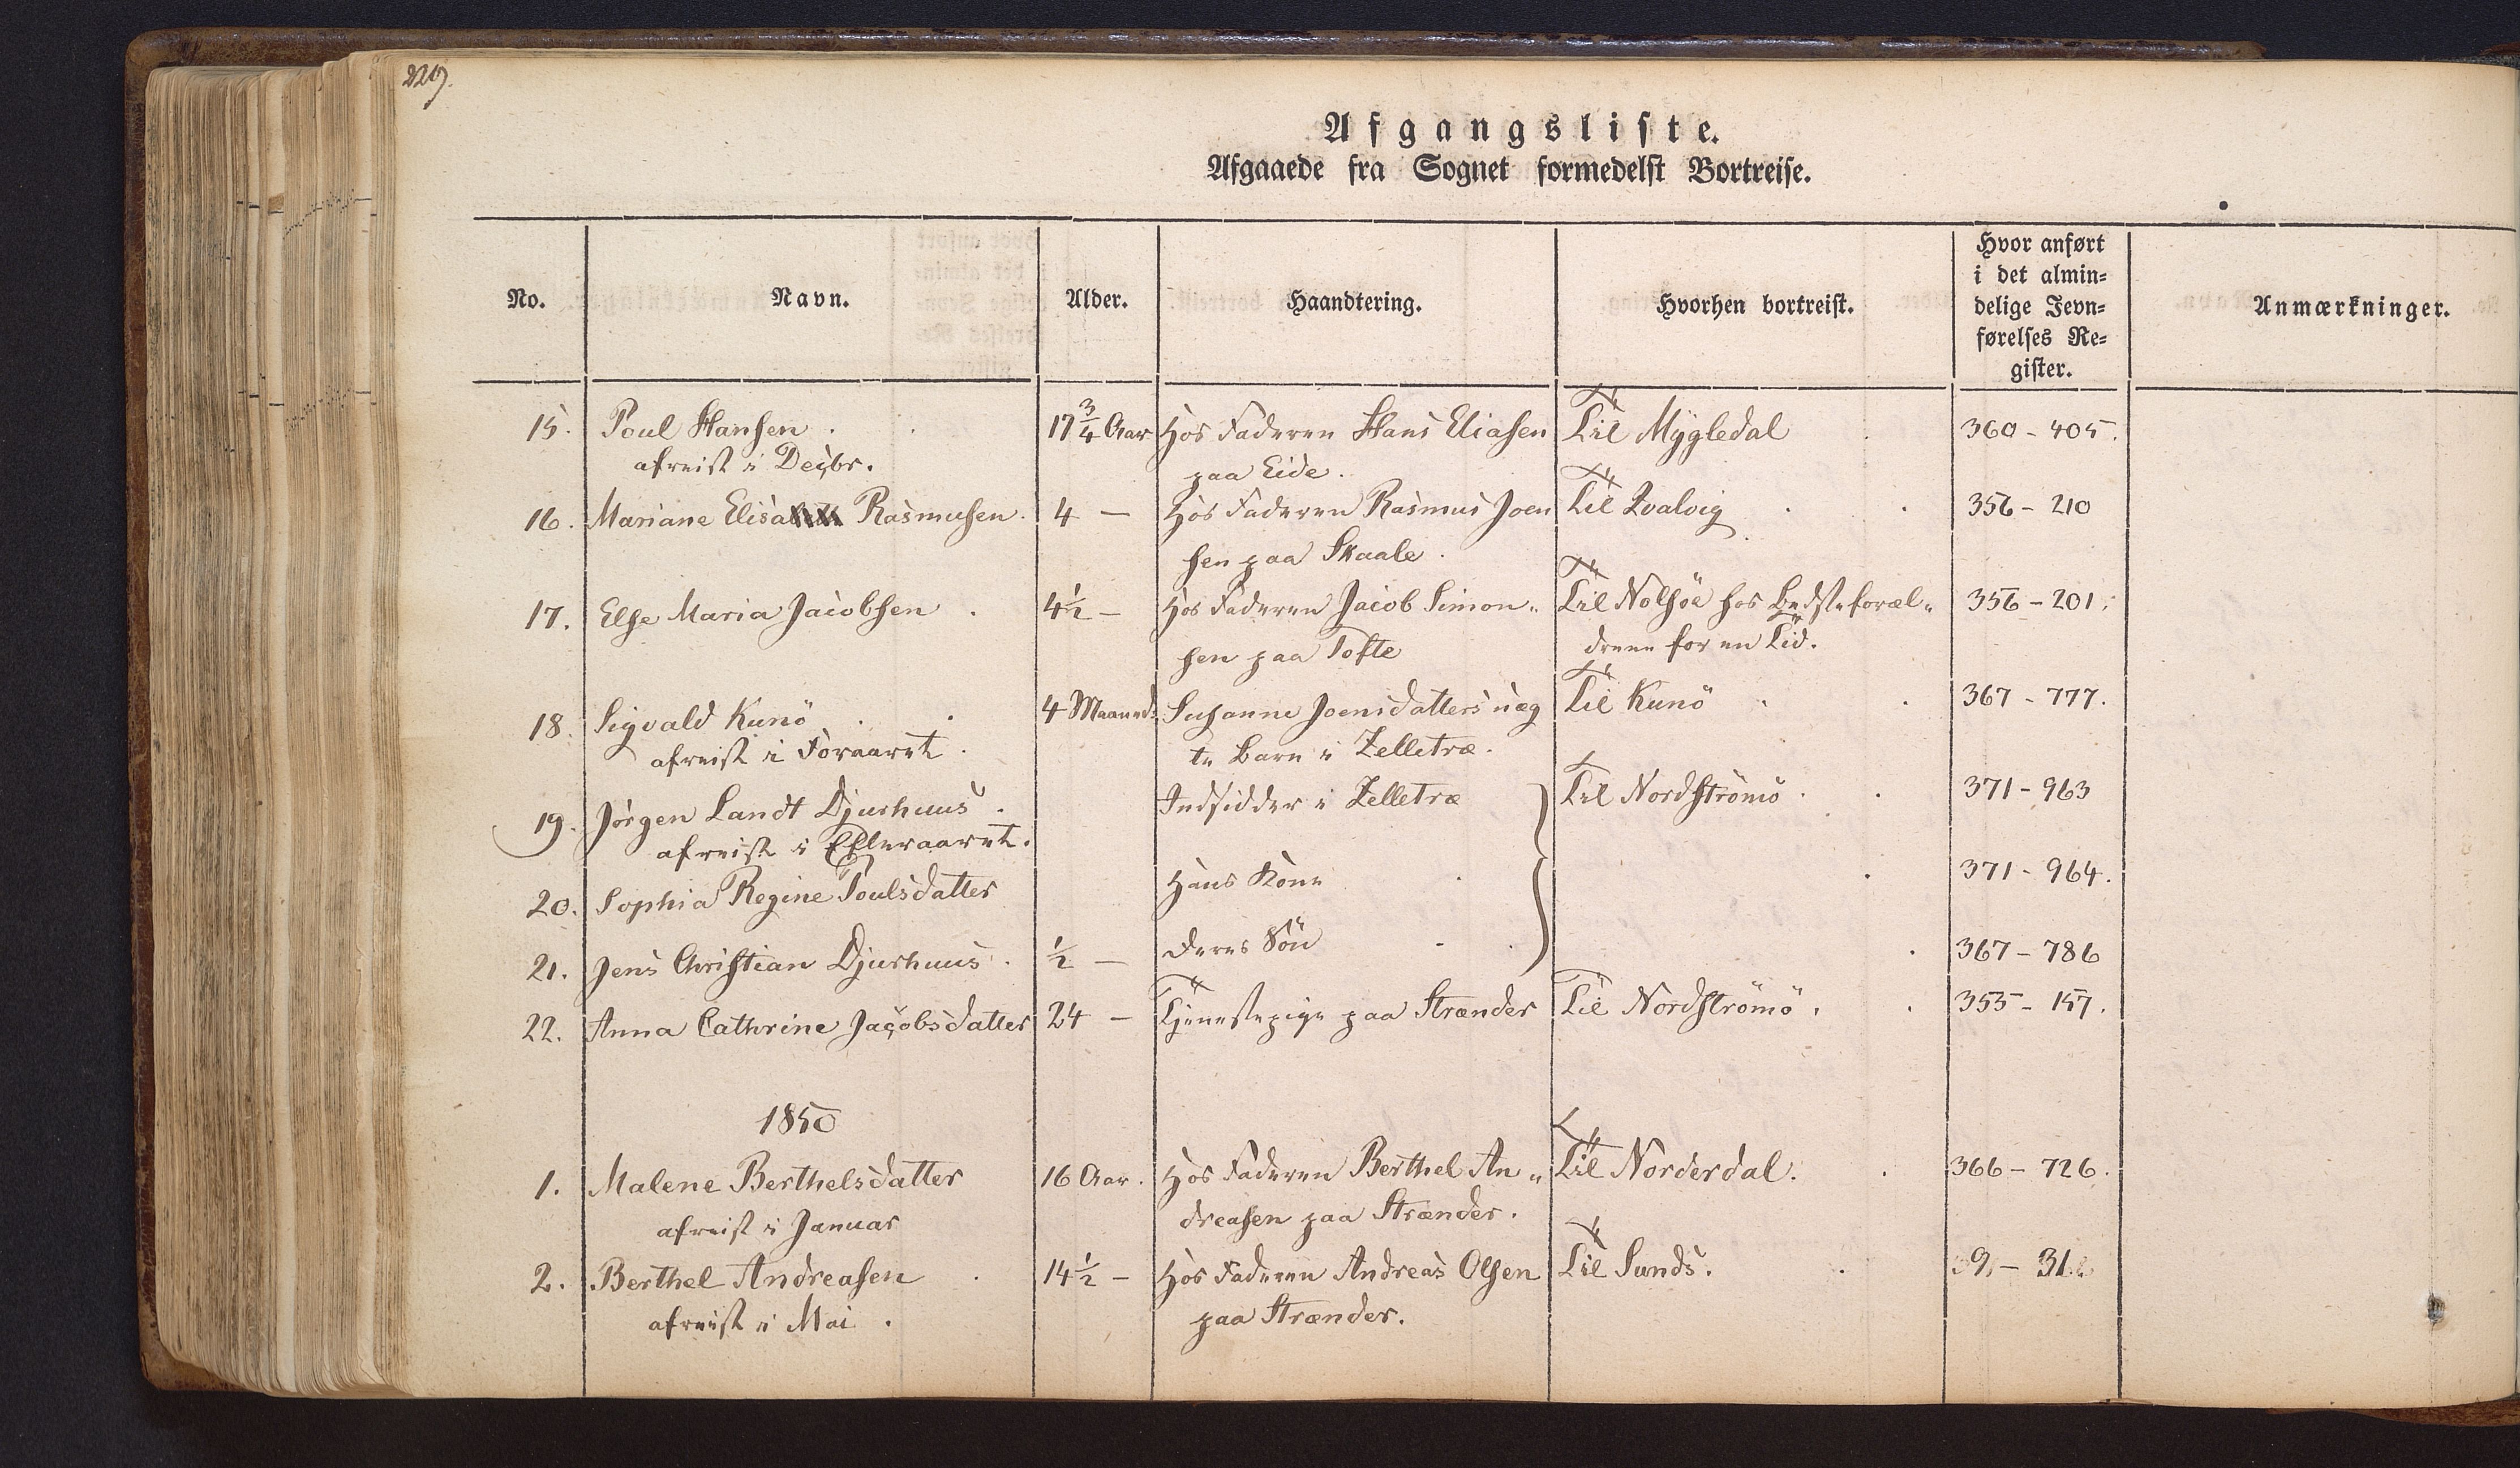 229.
Afgangsliste.
Afgaaede fra Sognet formedelst Bortreise.
No. Navn. Alder. Haandtering. Hvorhen bortreist. Hvor anført i det almin= delige Jevn= førelses Re= gister. Anmærkninger.
15. Poul Hansen . 17 3/4 Aar Hos Faderen Hans Eliasen Til Mygledal 360 - 405.
afreist i Decbr. paa Eide.
16. Mariane Elisa Rasmusen. 4 — Hos Faderen Rasmus Joen Til Qvalvig 356 - 210
sen paa Skaale.
17. Else Maria Jacobsen . 4 1/2 — Hos Faderen Jacob Simon„ Til Nolsöe hos Bedsteforæl„ 356 - 201.
sen paa Tofte drene for en Tid.
18. Sigvald Kunö . 4 Maaned: Susanne Joensdatters uæg Til Kunö 367 - 777.
afreist i Foraaret . te Barn i Zelletræ.
19. Jörgen Landt Djurhuus . Indsidder i Zelletræ Til Nordströmö . 371 - 963
afreist i Efteraaret.
20. Sophia Regine Poulsdatter Hans Kone 371 - 964.
21. Jens Christian Djurhuus . 1/2 — deres Sön 367 - 786
22. Anna Cathrine Jacobsdatter 24 — Tjenestepige paa Strænder Til Nordströmö . 353 - 157.
1850
1. Malene Berthelsdatter 16 Aar. Hos Faderen Berthel An„ Til Norderdal. 366 - 726.
afreist i Januar dreasen paa Strænder.
2. Berthel Andreasen . 14 1/2 — Hos Faderen Andreas Olsen Til Sunds. 9. - 31
afreist i Mai . paa Strænder.